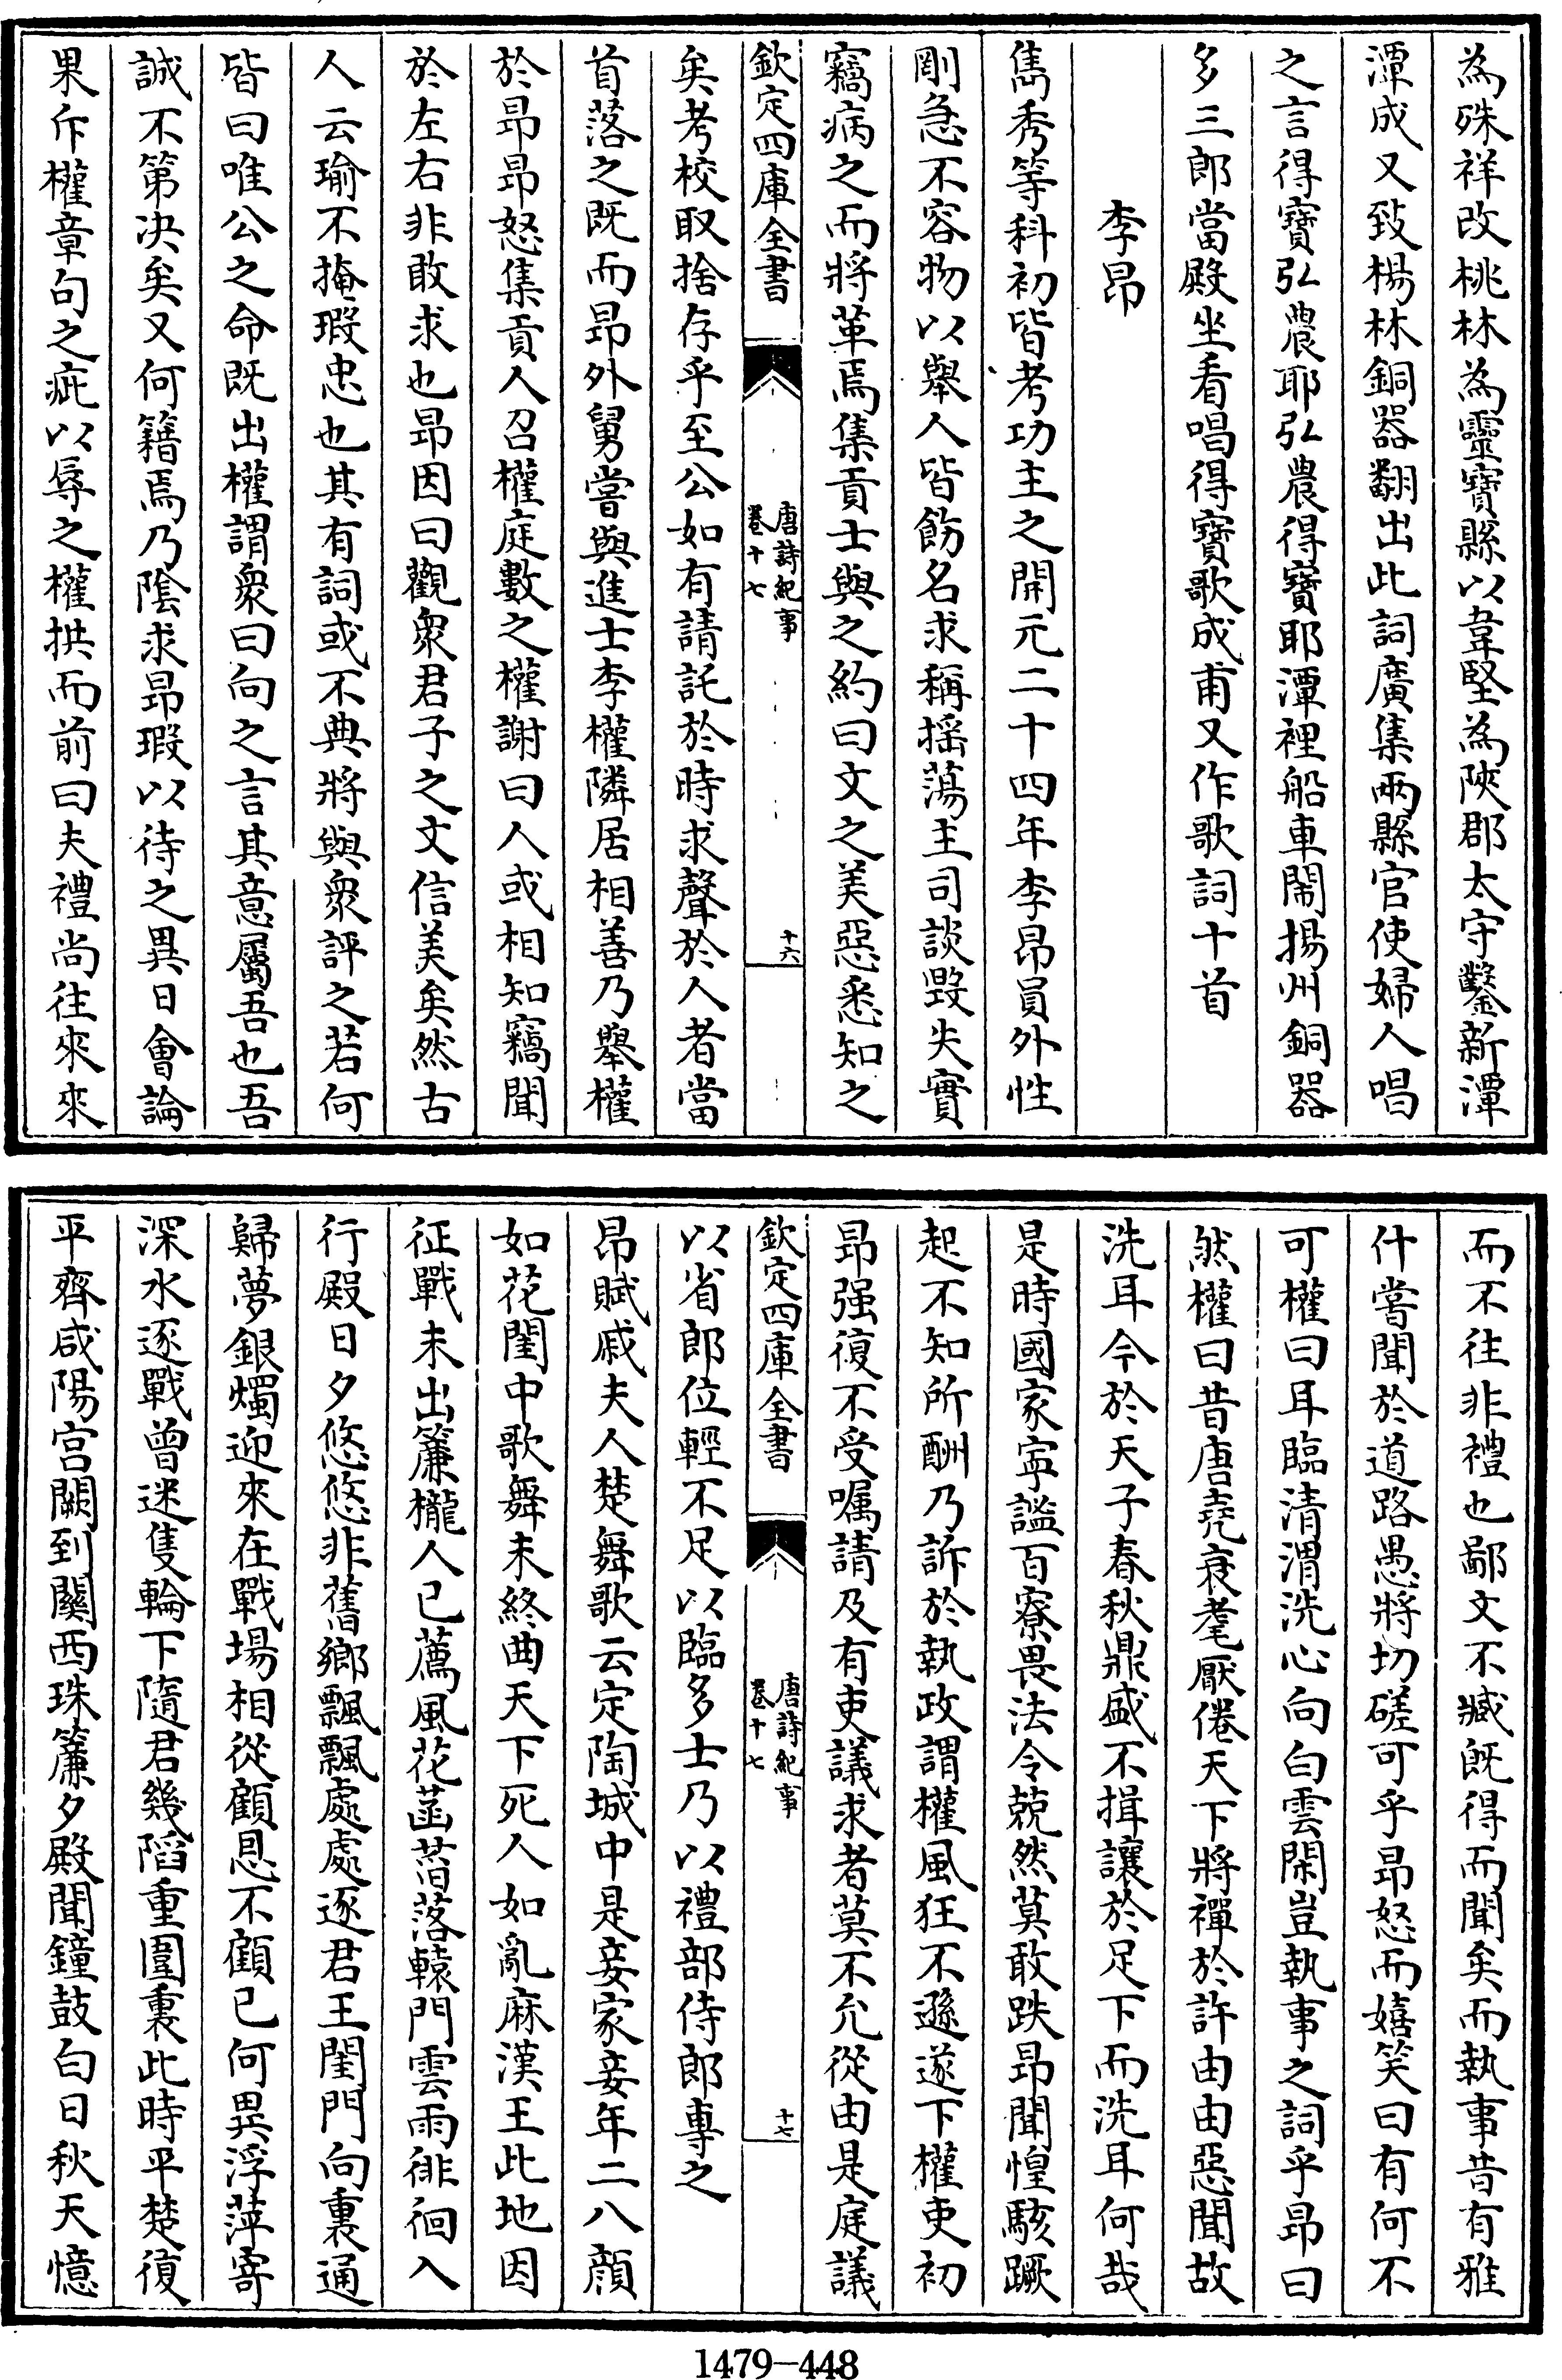 為殊祥改桃林為靈寶縣以韋堅為陜郡太守鑿新潭
潭成又致楊林銅器翻出此詞廣集兩縣官使婦人唱
之言得寶弘農耶弘農得寶耶潭裡船車鬧揚州銅器
多三郎當殿坐看唱得寶歌成甫又作歌詞十首
李昂
雋秀等科初皆考功主之開元二十四年李昂員外性
剛急不容物以舉人皆飭名求稱搖蕩主司談毀失實
竊病之而將革焉集貢士與之約曰文之美惡悉知之
欽定四庫全書
唐詩紀事
卷十七
十六
矣考校取捨存乎至公如有請託於時求聲於人者當
首落之既而昂外舅嘗與進士李權隣居相善乃舉權
於昂昂怒集貢人召權庭數之權謝曰人或相知竊聞
於左右非敢求也昂因曰觀衆君子之文信美矣然古
人云瑜不掩瑕忠也其有詞或不典將與衆評之若何
皆曰唯公之命既出權謂衆曰向之言其意屬吾也吾
誠不第決矣又何籍焉乃陰求昂瑕以待之異日會論
果斥權章句之疵以辱之權拱而前曰夫禮尚往來來
而不往非禮也鄙文不臧既得而聞矣而執事昔有雅
什嘗聞於道路愚將切磋可乎昂怒而嬉笑曰有何不
可權曰耳臨清渭洗心向白雲閑豈執事之詞乎昂曰
然權曰昔唐堯衰耄厭倦天下將禪於許由由惡聞故
洗耳今於天子春秋鼎盛不揖讓於足下而洗耳何哉
是時國家寧謐百寮畏法令兢然莫敢跌昂聞惶駭蹶
起不知所酬乃訴於執政謂權風狂不遜遂下權吏初
昂强復不受囑請及有吏議求者莫不允從由是庭議
欽定四庫全書
唐詩紀事
卷十七
十七
以省郎位輕不足以臨多士乃以禮部侍郎專之
昂賦戚夫人楚舞歌云定陶城中是妾家妾年二八顔
如花閨中歌舞未終曲天下死人如亂麻漢王此地因
征戰未出簾櫳人已薦風花菡萏落轅門雲雨徘徊入
行殿日夕悠悠非舊鄉飄飄處處逐君王閨門向裏通
歸夢銀燭迎來在戰場相從顧恩不顧已何異浮萍寄
深水逐戰曾迷隻輪下隨君幾陷重圍裏此時平楚復
平齊咸陽宫闕到關西珠簾夕殿聞鐘鼓白日秋天憶
1479-448